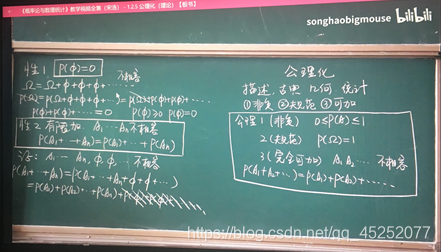 《概率论与数理统计》教学视频全集（宋浩） - 1.2.3 公理化（理论）【板书】
songhaobigmouse bilibili
性1 P(φ)=0 不相容
Ω=Ω+φ+φ+φ+·····
P(Ω)=P(Ω+φ+φ+φ+····)=P(Ω)+P(φ)+P(φ)+·····
P(φ)+P(φ)+·····=0 P(φ)≥0 P(φ)=0
性2 有限可加 A₁···Aₙ不相容
P(A₁+···+Aₙ)=P(A₁)+···+P(Aₙ)
证: A₁···Aₙ, φ, φ, ··· 不相容
P(A₁+···+Aₙ)=P(A₁+···+Aₙ+φ+φ+···)
=P(A₁)+P(A₂)+···+P(Aₙ)+
公理化
描述, 古典 几何 统计
①非负 ②规范 ③可加
公理1(非负) 0≤P(A)≤1
2(规范) P(Ω)=1
3(完全可加) A₁ A₂··· 不相容
P(A₁+A₂+···)=P(A₁)+P(A₂)+·····
https://blog.csdn.net/qq_45252077